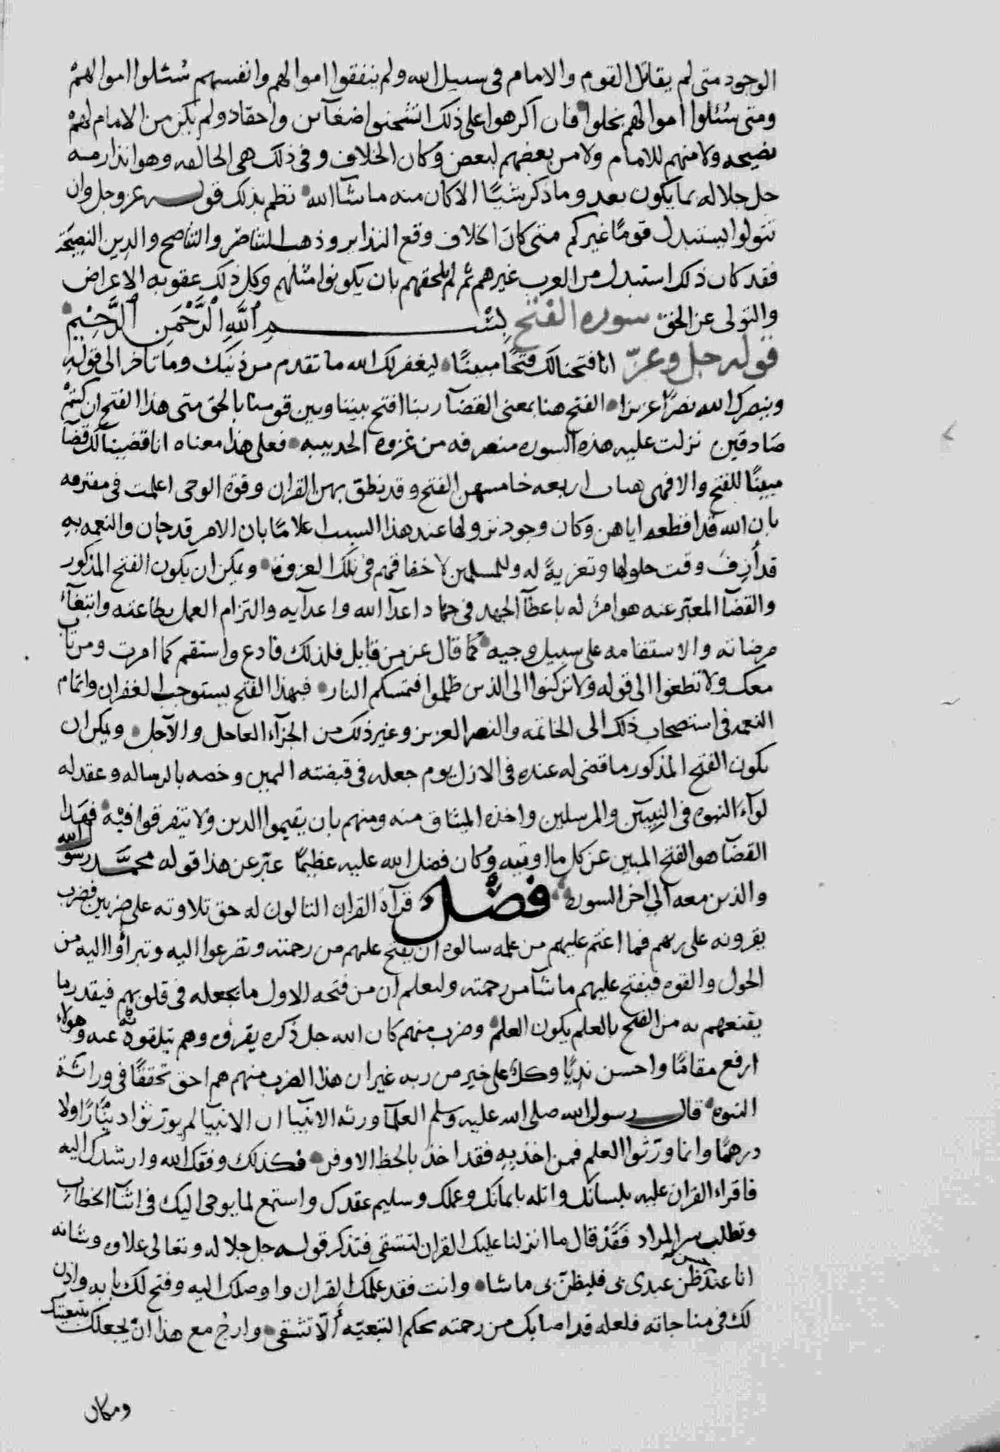 الوجود متى لم يقاتل القوم والامام فى سبيل الله ولم ينفقوا اموالهم وانفسهم سُئلوا اموالهم
ومتى سُئلوا اموالهم بخلوا فان اكرهوا على ذلك اضغاين واحقاد ولم يكن من الامام لهم
نصيحه ولا منهم للامام ولا من بعضهم لبعض وكان الخلاف وفى ذلك هى الحالقه وهو انذار منه
جل جلاله بما يكون بعد وما ذكر شيئًا الا كان منه ما شاالله نظم بذلك قوله عز وجل وان
تتولوا يستبدل قومًا غيركم متى كان الخلاف وقع التدابر وذهب التناصر والتناصح والدين النصيحة
فقد كان ذلك استبدل من العرب غيرهم ثم لم يلحقهم بان يكونوا مثلهم وكل ذلك عقوبه الاعراض
والتولى عن الحق سوره الفتح بِسْمِ اللَّهِ الرَّحْمَنِ الرَّحِيْمِ
قوله جل وعزّ انا فتحنا لك فتحًا مبينًا ليغفر لك الله ما تقدم من ذنبك وما تاخر الى قوله
وينصرك الله نصرًا عزيزا الفتح هنا بمعنى القضآ ربنا افتح بيننا وبين قومنا بالحق متى هذا الفتح ان كنتم
صادقين نزلت عليه هذه السوره منصرفه من غزوه الحديبيه فعلى هذا معناه انا قضينا لك قضآ
مبينًا للفتح والا فهى اربعه خامسهن الفتح وقد نطق بهن القران وقوة الوحى اعلمت فى مفترقه
بان الله قد اقطعه اياهن وكان وجود نزولها عند هذا السبب اعلامًا بان الامر قد حان والنعمه به
قد أزِفَ وقت حلولها وتعزيةً له وللمسلمين لاخفاقهم فى تلك الغزوة ويمكن ان يكون الفتح المذكور
والقضآ المعبّر عنه هو امرٌ له باعطآ الجهد فى جهاد اعدآ الله واعدآيه والتزام العمل بطاعته وابتغآ
مرضاته والاستقامه على سبيل وحيه كما قال عز من قايل فلذلك فادع واستقم كما امرت ومن تاب
معك ولا تطغوا الى قوله ولا تركنوا الى الذين ظلموا فتمسكم النار فبهذا الفتح يستوجب الغفران واتمام
النعمه فى استصحاب ذلك الى الخاتمه والنصر العزيز وغير ذلك من الجزآء العاجل والآجل ويمكن ان
يكون الفتح المذكور ما قضى له عنده فى الازل يوم جعله فى قبضته اليمين وخصه بالرساله وعقد له
لوآء النبوه فى النبيين والمرسلين واخذ الميثاق منه ومنهم بان يقيموا الدين ولا يتفرقوا فيه فهذا
القضآ هو الفتح المبين عن كل ما اوتيه وكان فضل الله عليه عظيمًا عبّر عن هذا قوله محمَّد رسول الله
والذين معه الى اخر السورة فصْل قرآة القران التالون له حق تلاوته على ضربين فضرب
يقرونه على ربهم فما اغتم عليهم من علمه سالوه ان يفتح عليهم من رحمته وتضرعوا اليه وتبرأوا اليه من
الحول والقوه فيفتح عليهم ما شآ من رحمته وليعلم ان من فتحه الاول ما يجعله فى قلوبهم فيقدر ما
يقنعهم به من الفتح بالعلم يكون العلم وضرب منهم كان الله جل ذكره يقروه وهم يتلقونه عنه وهولاء
ارفع مقامًا واحسن نديًا وكل على خير من ربه غير ان هذا الضرب منهم هم احق تحققًا فى وراثة
النبوه قال رسول الله صلى الله عليه وسلم العلمآ ورثه الانبيا ان الانبيا لم يورثوا دينارًا ولا
درهمًا وانما ورّثوا العلم فمن اخذ به فقد اخذ بالحظ الاوفر فكذلك وفقك الله وارشدك اليه
فاقراء القران عليه بلسانك واتله بايمانك وعملك وسليم عقدك واستمع لما يوحى اليك فى اثنآ الخطاب
وتطلب سر المراد فَقَدْ قال ما انزلنا عليك القران لتشقى فتذكر قوله جل جلاله وتعالى علاوه وشانه
انا عند ظن عبدى بى فليظنّ بى ما شا وانت فقد علمك القران واوصلك اليه وفتح لك بابه واذن
لك فى مناجاته فلعله قد اصابك من رحمته بحكم التبعيّه ألا تشقى وارجُ مع هذا ان يجعلك بتبعيتك
ومكان